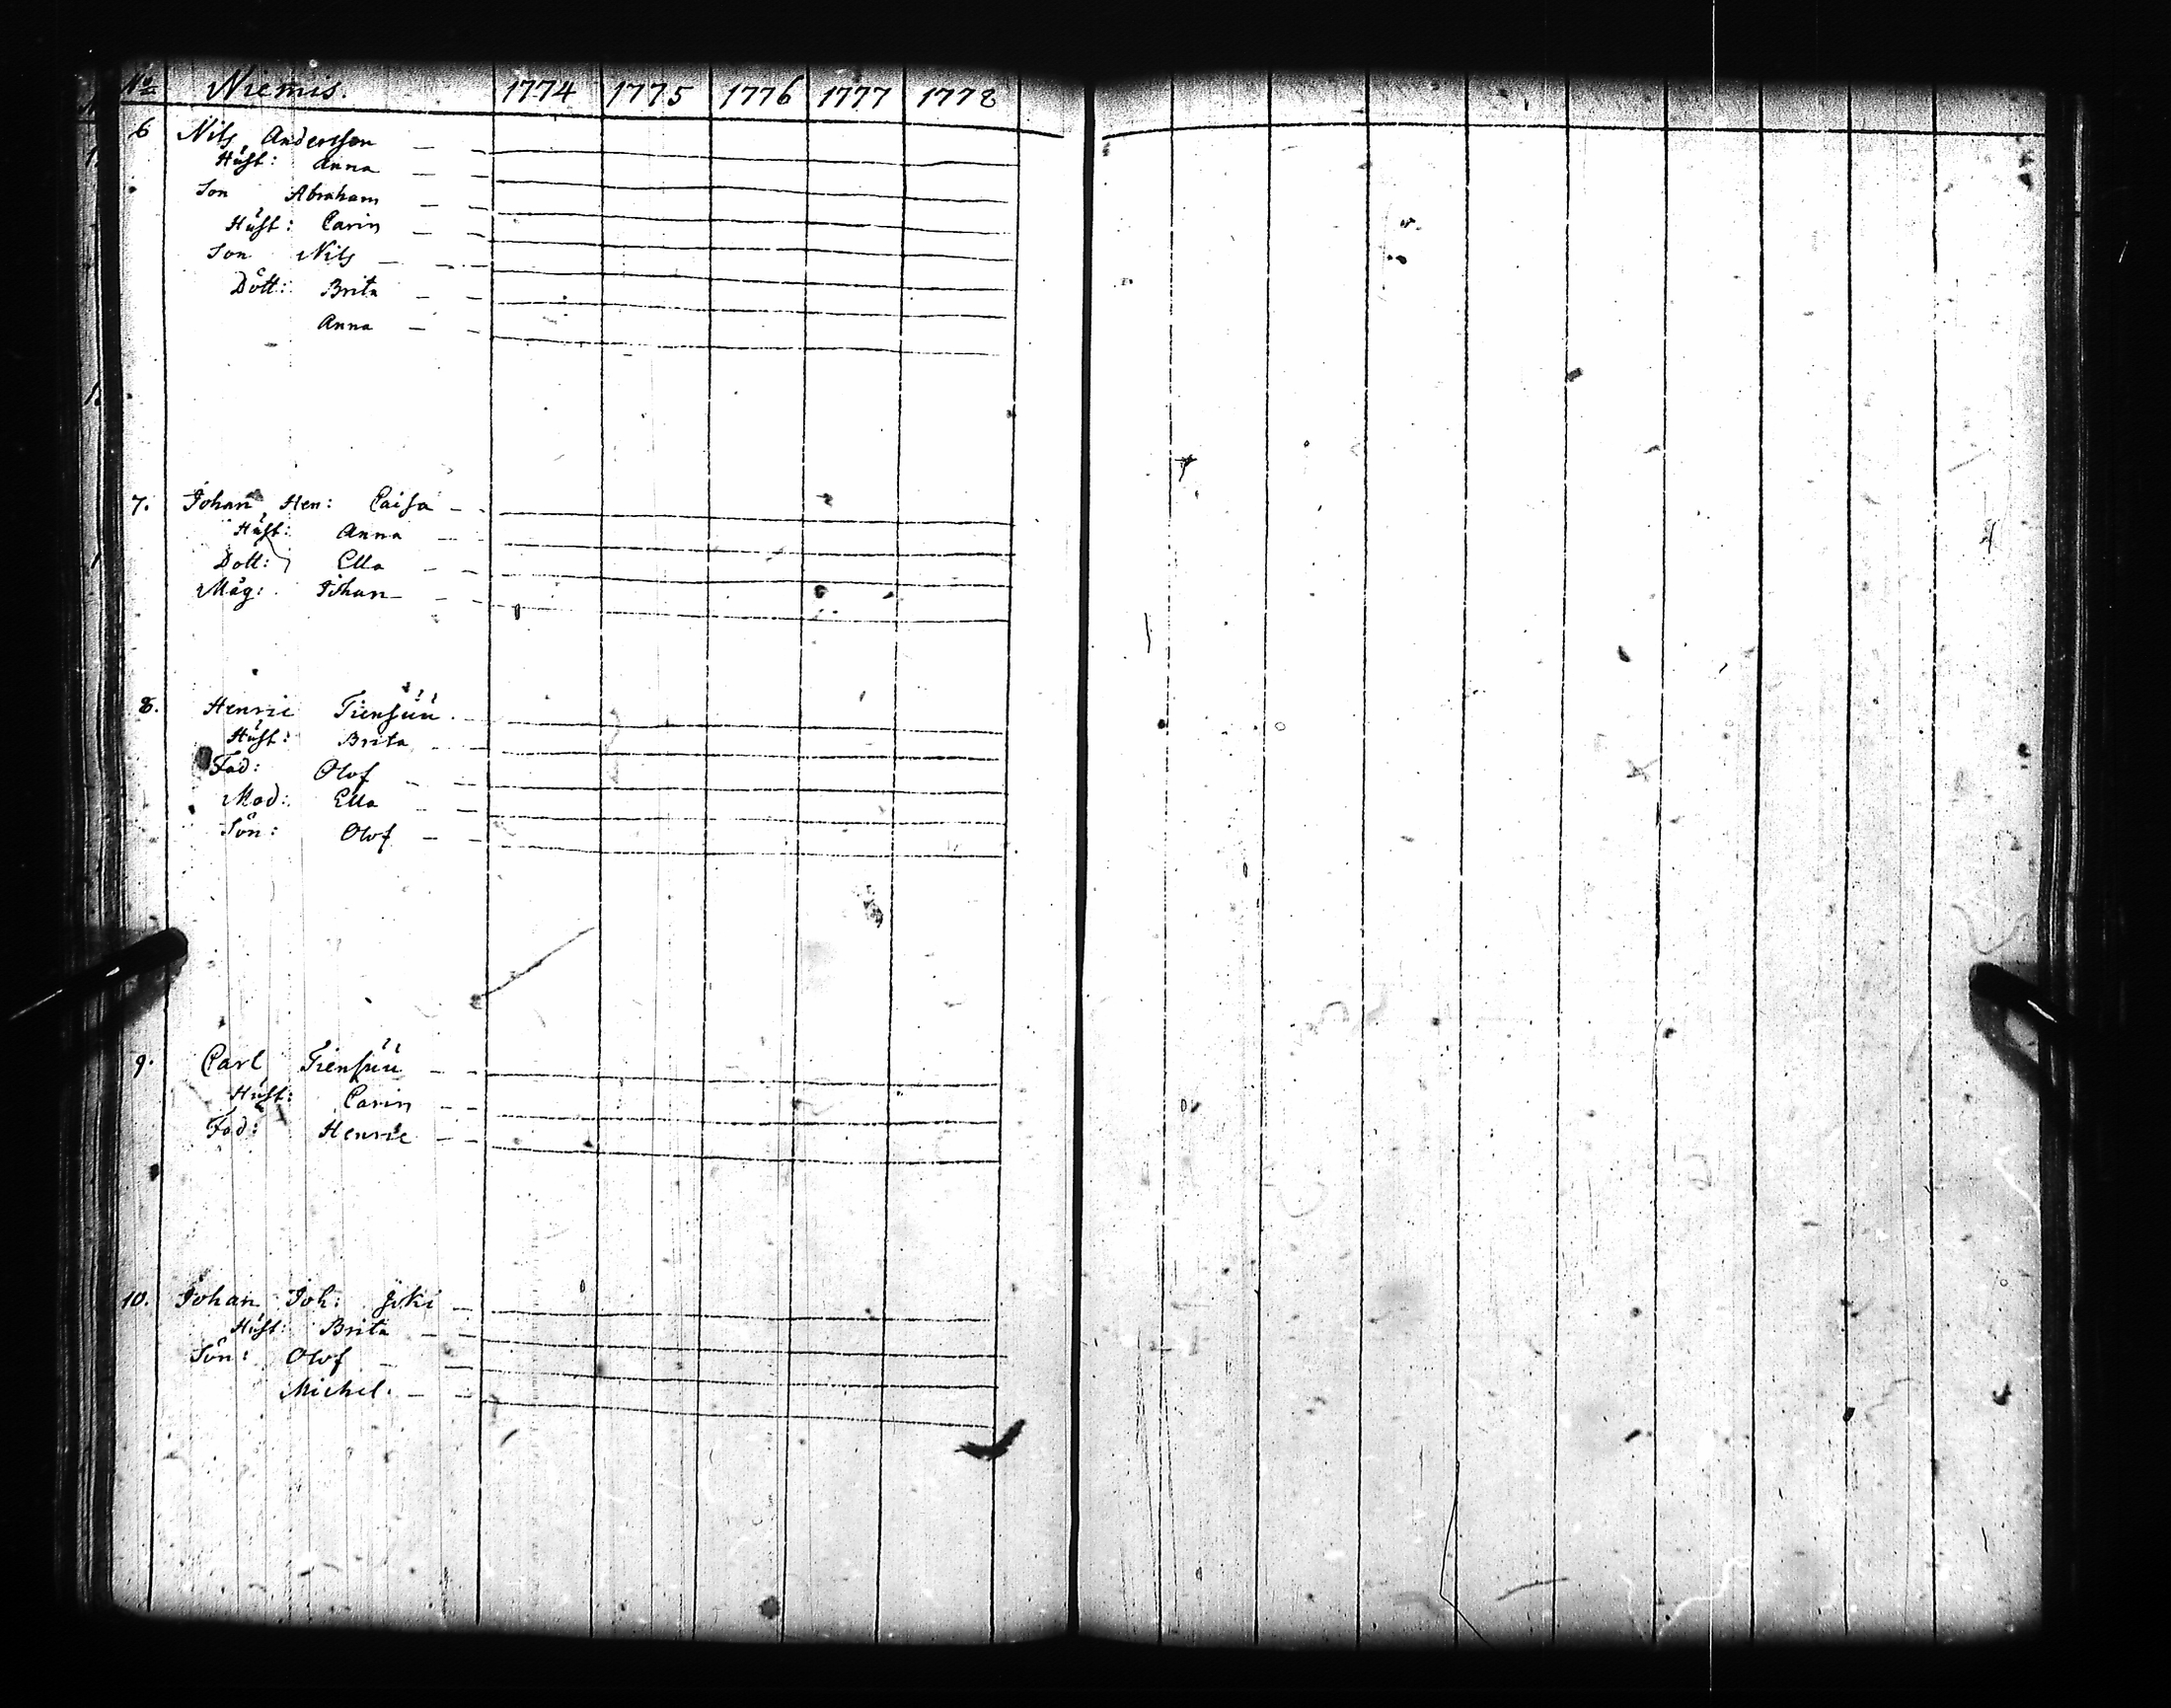 No Niemis. 1774 1775 1776 1777 1778
6 Nils Andersson
Hust: Anna
Son Abraham
Hust: Carin
Son Nils
Dött: Brita
Anna
7. Johan Hen: Caisa
Hust: Anna
Dott: Ella
Måg: Johan
8. Henric Tiensuu
Hust: Brita
Fad: Olof
Mod: Ella
Son: Olof
9. Carl Tiensuu
Hust: Carin
Fad: Henric
10. Johan Joh: Joki
Hust: Brita
Son: Olof
Michel.